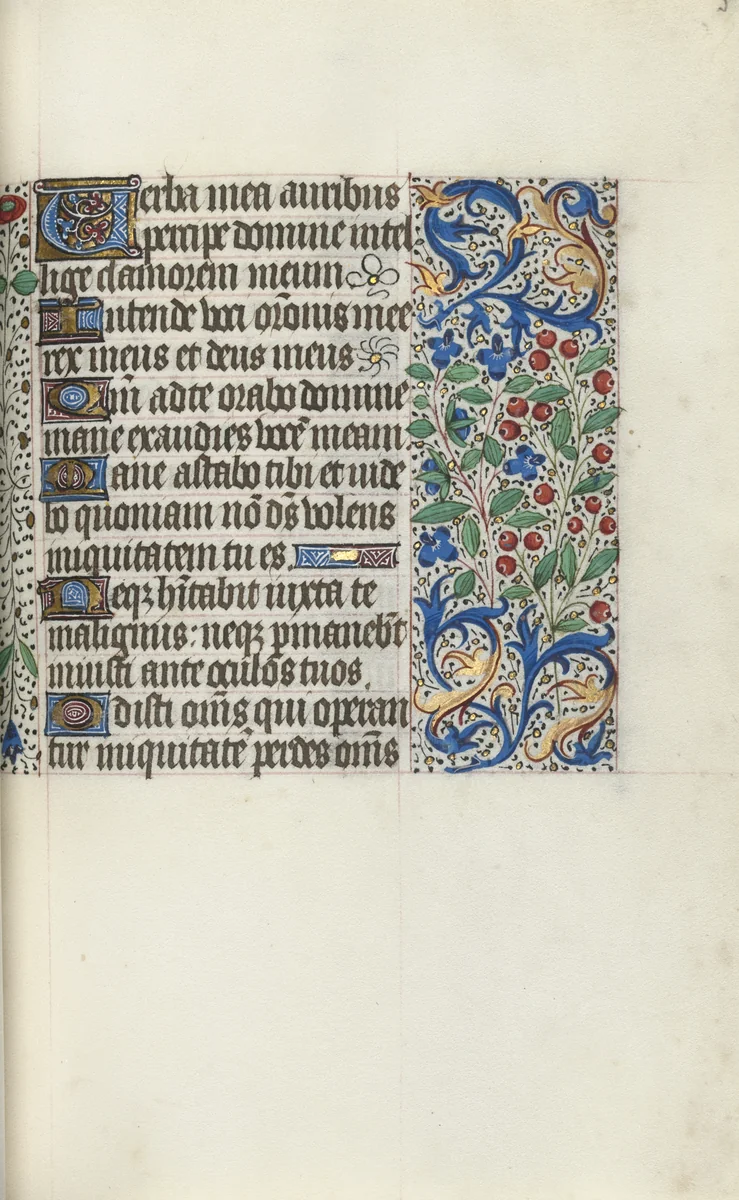 Verba mea auribus
percipe domine intel
lige clamorem meum
Intende voci orõnis mee
rex meus et deus meus
Qm̄ ad te orabo domine
mane exaudies vocē meam
Mane astabo tibi et uide
bo quoniam nō ds̄ volens
iniquitatem tu es.
Neqꝫ hītabit iuxta te
malignus: neqꝫ pmanebūt
iniusti ante oculos tuos.
Odisti om̄s qui operan
tur iniquitatē perdes om̄s